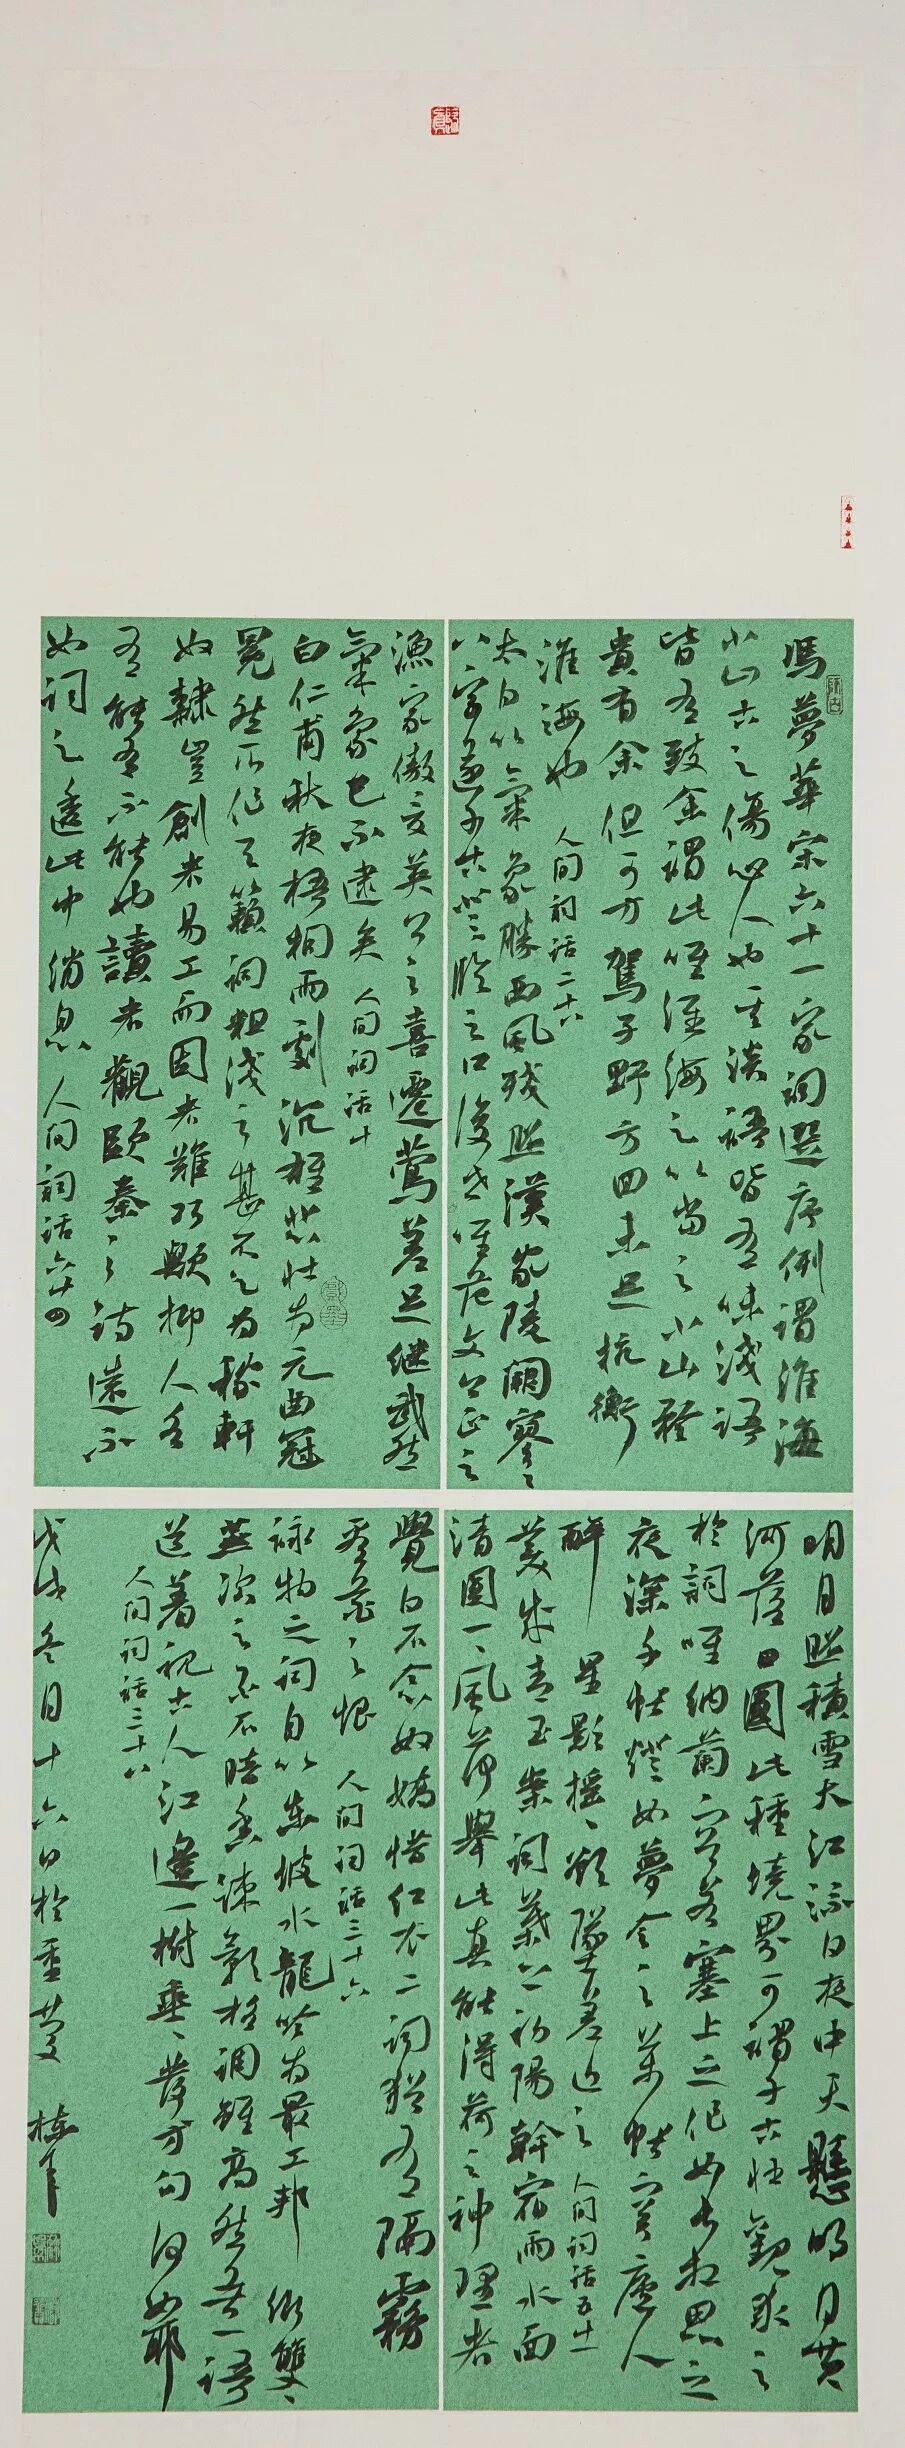 馮夢華宋六十一家詞選序例謂淮海
小山古之傷心人也其淡語皆有味淺語
皆有致余謂此唯淮海足以當之小山矜
貴有余但可方駕子野方回未足抗衡
淮海也 人间詞話二十八
太白以氣象勝西風殘照漢家陵闕寥〻
八字遂千古登臨之口後世唯范文正之
漁家傲夏英公之喜遷鶯差足继武然
氣象已不逮矣 人间詞話十
白仁甫秋夜梧桐雨劇沉雄悲壯為元曲冠
冕然所作天籟詞粗淺之甚不足為稼軒
奴隸豈創者易工而因者難巧歟抑人各
有能有不能也讀者觀歐秦之詩遠不
如詞足透此中消息 人间詞話六十四
明月照積雪大江流日夜中天懸明月黄
河落日圓此種境界可謂千古壯觀求之
於詞唯納蘭容若塞上之作如長相思之
夜深千帳燈如夢令之萬帳穹廬人
醉 星影摇〻欲墜差近之 人间詞話五十一
美成青玉案詞葉上初陽幹宿雨水面
清圓一〻風荷舉此真能得荷之神理者
覺白石念奴嬌惜红衣二词猶有隔霧
看花之恨 人间词話三十六
詠物之詞自以東坡水龍吟為最工邦卿雙〻
燕次之白石暗香疎影格調雖高然無一語
道着視古人江邊一樹垂〻發等句何如耶
人间词話三十八
戊戌冬月十六日於